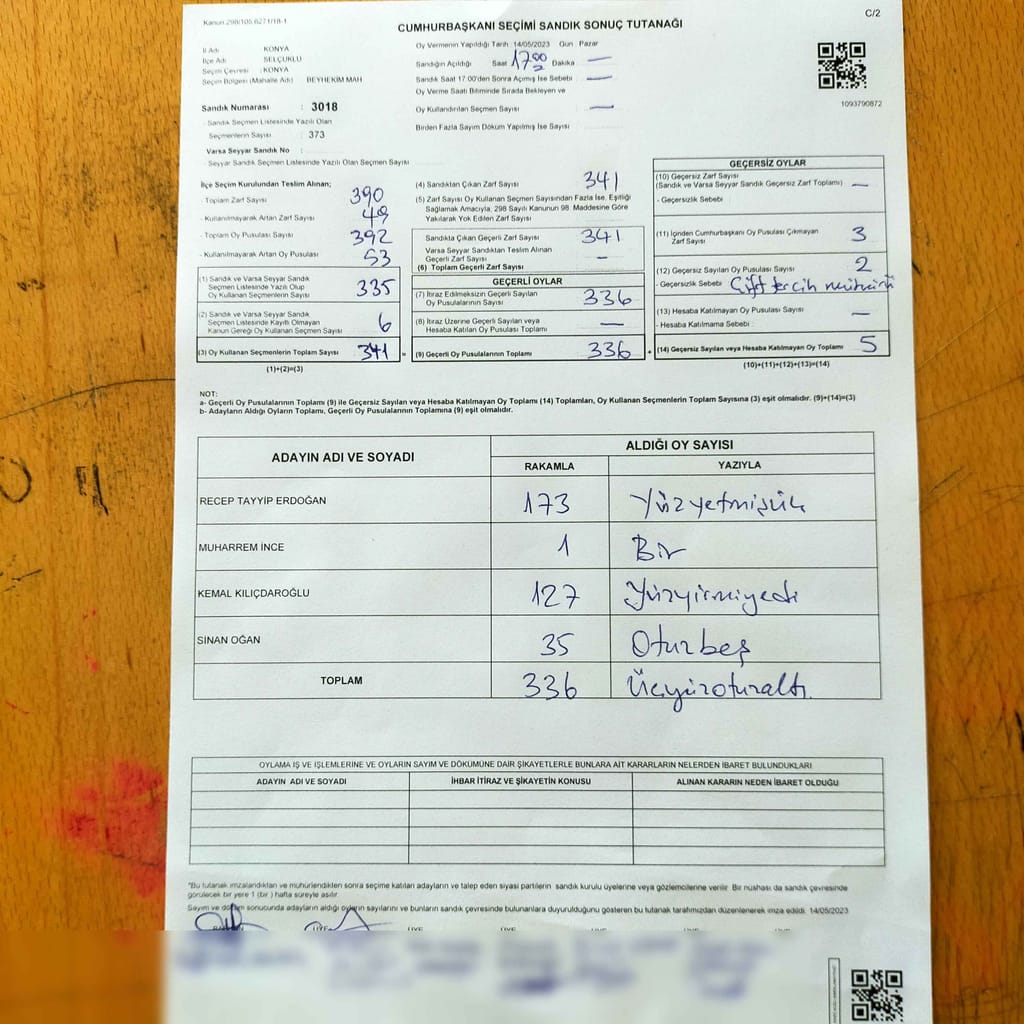 Kanun:298/105,6271/18-1
C/2
CUMHURBAŞKANI SEÇİMİ SANDIK SONUÇ TUTANAĞI
İl Adı : KONYA
İlçe Adı : SELÇUKLU
Seçim Çevresi : KONYA
Seçim Bölgesi (Mahalle Adı) : BEYHEKİM MAH
Sandık Numarası : 3018
- Sandık Seçmen Listesinde Yazılı Olan
Seçmenlerin Sayısı : 373
Varsa Seyyar Sandık No :
- Seyyar Sandık Seçmen Listesinde Yazılı Olan Seçmen Sayısı
Oy Vermenin Yapıldığı Tarih 14/05/2023 Gün Pazar
Sandığın Açıldığı Saat 17 00 Dakika —
Sandık Saat 17:00'den Sonra Açılmış İse Sebebi —
Oy Verme Saati Bitiminde Sırada Bekleyen ve
Oy Kullandırılan Seçmen Sayısı —
Birden Fazla Sayım Döküm Yapılmış İse Sayısı
1093790872
İlçe Seçim Kurulundan Teslim Alınan;
- Toplam Zarf Sayısı 390
- Kullanılmayarak Artan Zarf Sayısı 49
- Toplam Oy Pusulası Sayısı 392
- Kullanılmayarak Artan Oy Pusulası 53
(1) Sandık ve Varsa Seyyar Sandık
Seçmen Listesinde Yazılı Olup
Oy Kullanan Seçmenlerin Sayısı 335
(2) Sandık ve Varsa Seyyar Sandık
Seçmen Listesinde Kayıtlı Olmayan
Kanun Gereği Oy Kullanan Seçmen Sayısı 6
(3) Oy Kullanan Seçmenlerin Toplam Sayısı 341 =
(1)+(2)=(3)
(4) Sandıktan Çıkan Zarf Sayısı 341
(5) Zarf Sayısı Oy Kullanan Seçmen Sayısından Fazla İse, Eşitliği
Sağlamak Amacıyla, 298 Sayılı Kanunun 98. Maddesine Göre
Yakılarak Yok Edilen Zarf Sayısı
Sandıkta Çıkan Geçerli Zarf Sayısı 341
Varsa Seyyar Sandıktan Teslim Alınan
Geçerli Zarf Sayısı —
(6) Toplam Geçerli Zarf Sayısı
GEÇERLİ OYLAR
(7) İtiraz Edilmeksizin Geçerli Sayılan
Oy Pusulalarının Sayısı 336
(8) İtiraz Üzerine Geçerli Sayılan veya
Hesaba Katılan Oy Pusulası Toplamı —
(9) Geçerli Oy Pusulalarının Toplamı 336 +
GEÇERSİZ OYLAR
(10) Geçersiz Zarf Sayısı
(Sandık ve Varsa Seyyar Sandık Geçersiz Zarf Toplamı) —
- Geçersizlik Sebebi :
(11) İçinden Cumhurbaşkanı Oy Pusulası Çıkmayan
Zarf Sayısı 3
(12) Geçersiz Sayılan Oy Pusulası Sayısı 2
- Geçersizlik Sebebi : Çift tercih mührü
(13) Hesaba Katılmayan Oy Pusulası Sayısı —
- Hesaba Katılmama Sebebi :
(14) Geçersiz Sayılan veya Hesaba Katılmayan Oy Toplamı 5
(10)+(11)+(12)+(13)=(14)
NOT:
a- Geçerli Oy Pusulalarının Toplamı (9) ile Geçersiz Sayılan veya Hesaba Katılmayan Oy Toplamı (14) Toplamları, Oy Kullanan Seçmenlerin Toplam Sayısına (3) eşit olmalıdır. (9)+(14)=(3)
b- Adayların Aldığı Oyların Toplamı, Geçerli Oy Pusulalarının Toplamına (9) eşit olmalıdır.
ADAYIN ADI VE SOYADI
ALDIĞI OY SAYISI
RAKAMLA YAZIYLA
RECEP TAYYİP ERDOĞAN 173 Yüzyetmişüç
MUHARREM İNCE 1 Bir
KEMAL KILIÇDAROĞLU 127 Yüzyirmiyedi
SİNAN OĞAN 35 Oturbeş
TOPLAM 336 Üçyüzoturaltı.
OYLAMA İŞ VE İŞLEMLERİNE VE OYLARIN SAYIM VE DÖKÜMÜNE DAİR ŞİKAYETLERLE BUNLARA AİT KARARLARIN NELERDEN İBARET BULUNDUKLARI
ADAYIN ADI VE SOYADI İHBAR İTİRAZ VE ŞİKAYETİN KONUSU ALINAN KARARIN NEDEN İBARET OLDUĞU
"Bu tutanak imzalandıktan ve mühürlendikten sonra seçime katılan adayların ve talep eden siyasi partilerin sandık kurulu üyelerine veya gözlemcilerine verilir. Bir nüshası da sandık çevresinde
görülecek bir yere 1 (bir) hafta süreyle asılır.
Sayım ve döküm sonucunda adayların aldığı oyların sayılarını ve bunların sandık çevresinde bulunanlara duyurulduğunu gösteren bu tutanak tarafımızdan düzenlenerek imza edildi. 14/05/2023